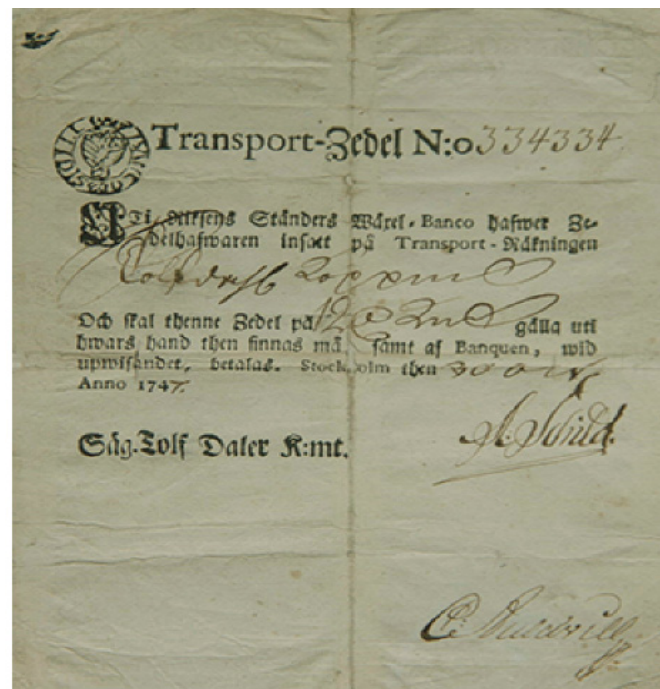 Transport-Zedel N:o 334334
Ti Riksens Ständers Wäxel-Banco hafwer Ze-
delhafwaren insatt på Transport-Räkningen
Och skal thenne Zedel på 12 gälla uti
hwars hand then finnas må, samt af Banquen, wid
upwisandet, betalas. Stockholm then
Anno 1747.
Säg. Tolf Daler K:mt.